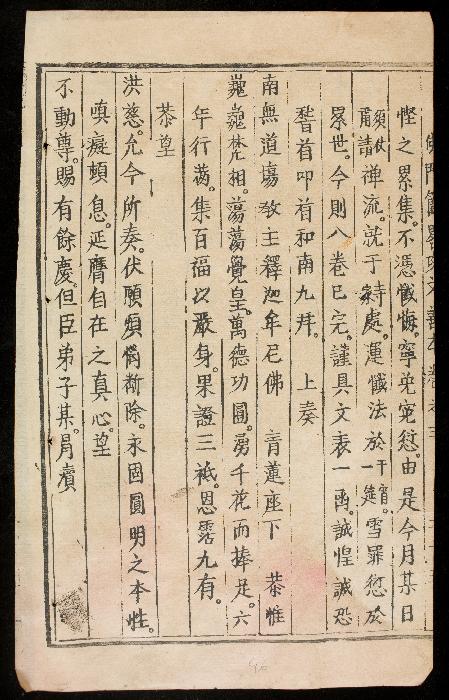 慳之累集。不憑懺悔。寧免寃愆。由是今月某日
顧伏
屑請禪流。就于 處。運懺法於一筵。雪罪愆於
累世。今則八卷已完。謹具文表一函。誠惶誠恐
稽首叩首和南九拜。 上奏
南無道場教主釋迦牟尼佛 青蓮座下 恭惟
巍巍梵相。蕩蕩覺皇。萬德功圓。湧千花而捧足。六
年行滿。集百福以嚴身。果證三祇。恩霑九有。
恭望
洪慈。允今所奏。伏願煩惱斷除。永固圓明之本性。
嗔癡頓息。延膺自在之真心。望
不動尊。賜有餘慶。但臣弟子某。冐瀆